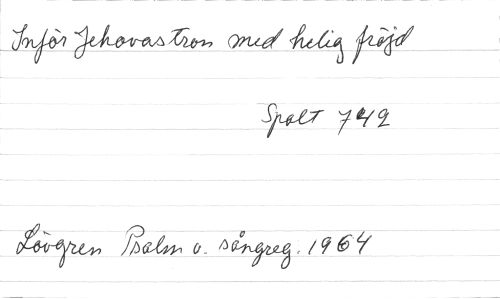 Inför Jehovas tron med helig fröjd
Spalt 742
Lövgren Psalm o. sångreg. 1964